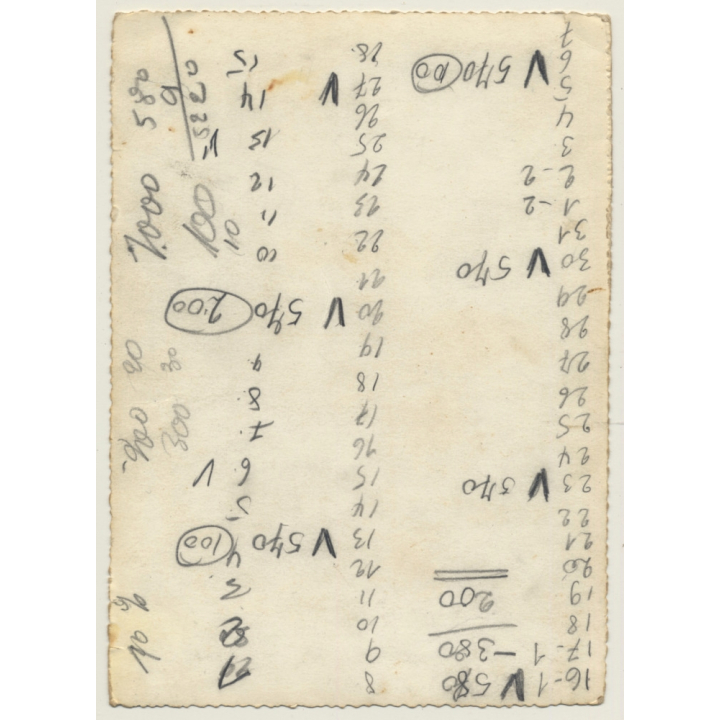 16-1 V 580
17-1 -380
18
19 200
20
21
22
23 V 570
24
25
26
27
28
29
30 V 570
31
1-2
2-2
3
4
5
6 V 570 100
7
8
9
10
11
12
13 V 570 100
14
15
16
17
18
19
20 V 570 200
21
22
23
24
25
26
27 V
28
1
2
3
4
5
6 V
7
8
9
10
11
12
13 V
14
15
580
9
5220
7.000
100
10
20
300
30